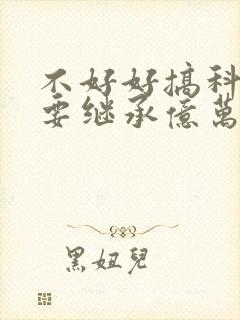 不好好搞科
要继承億萬
黑妞兒